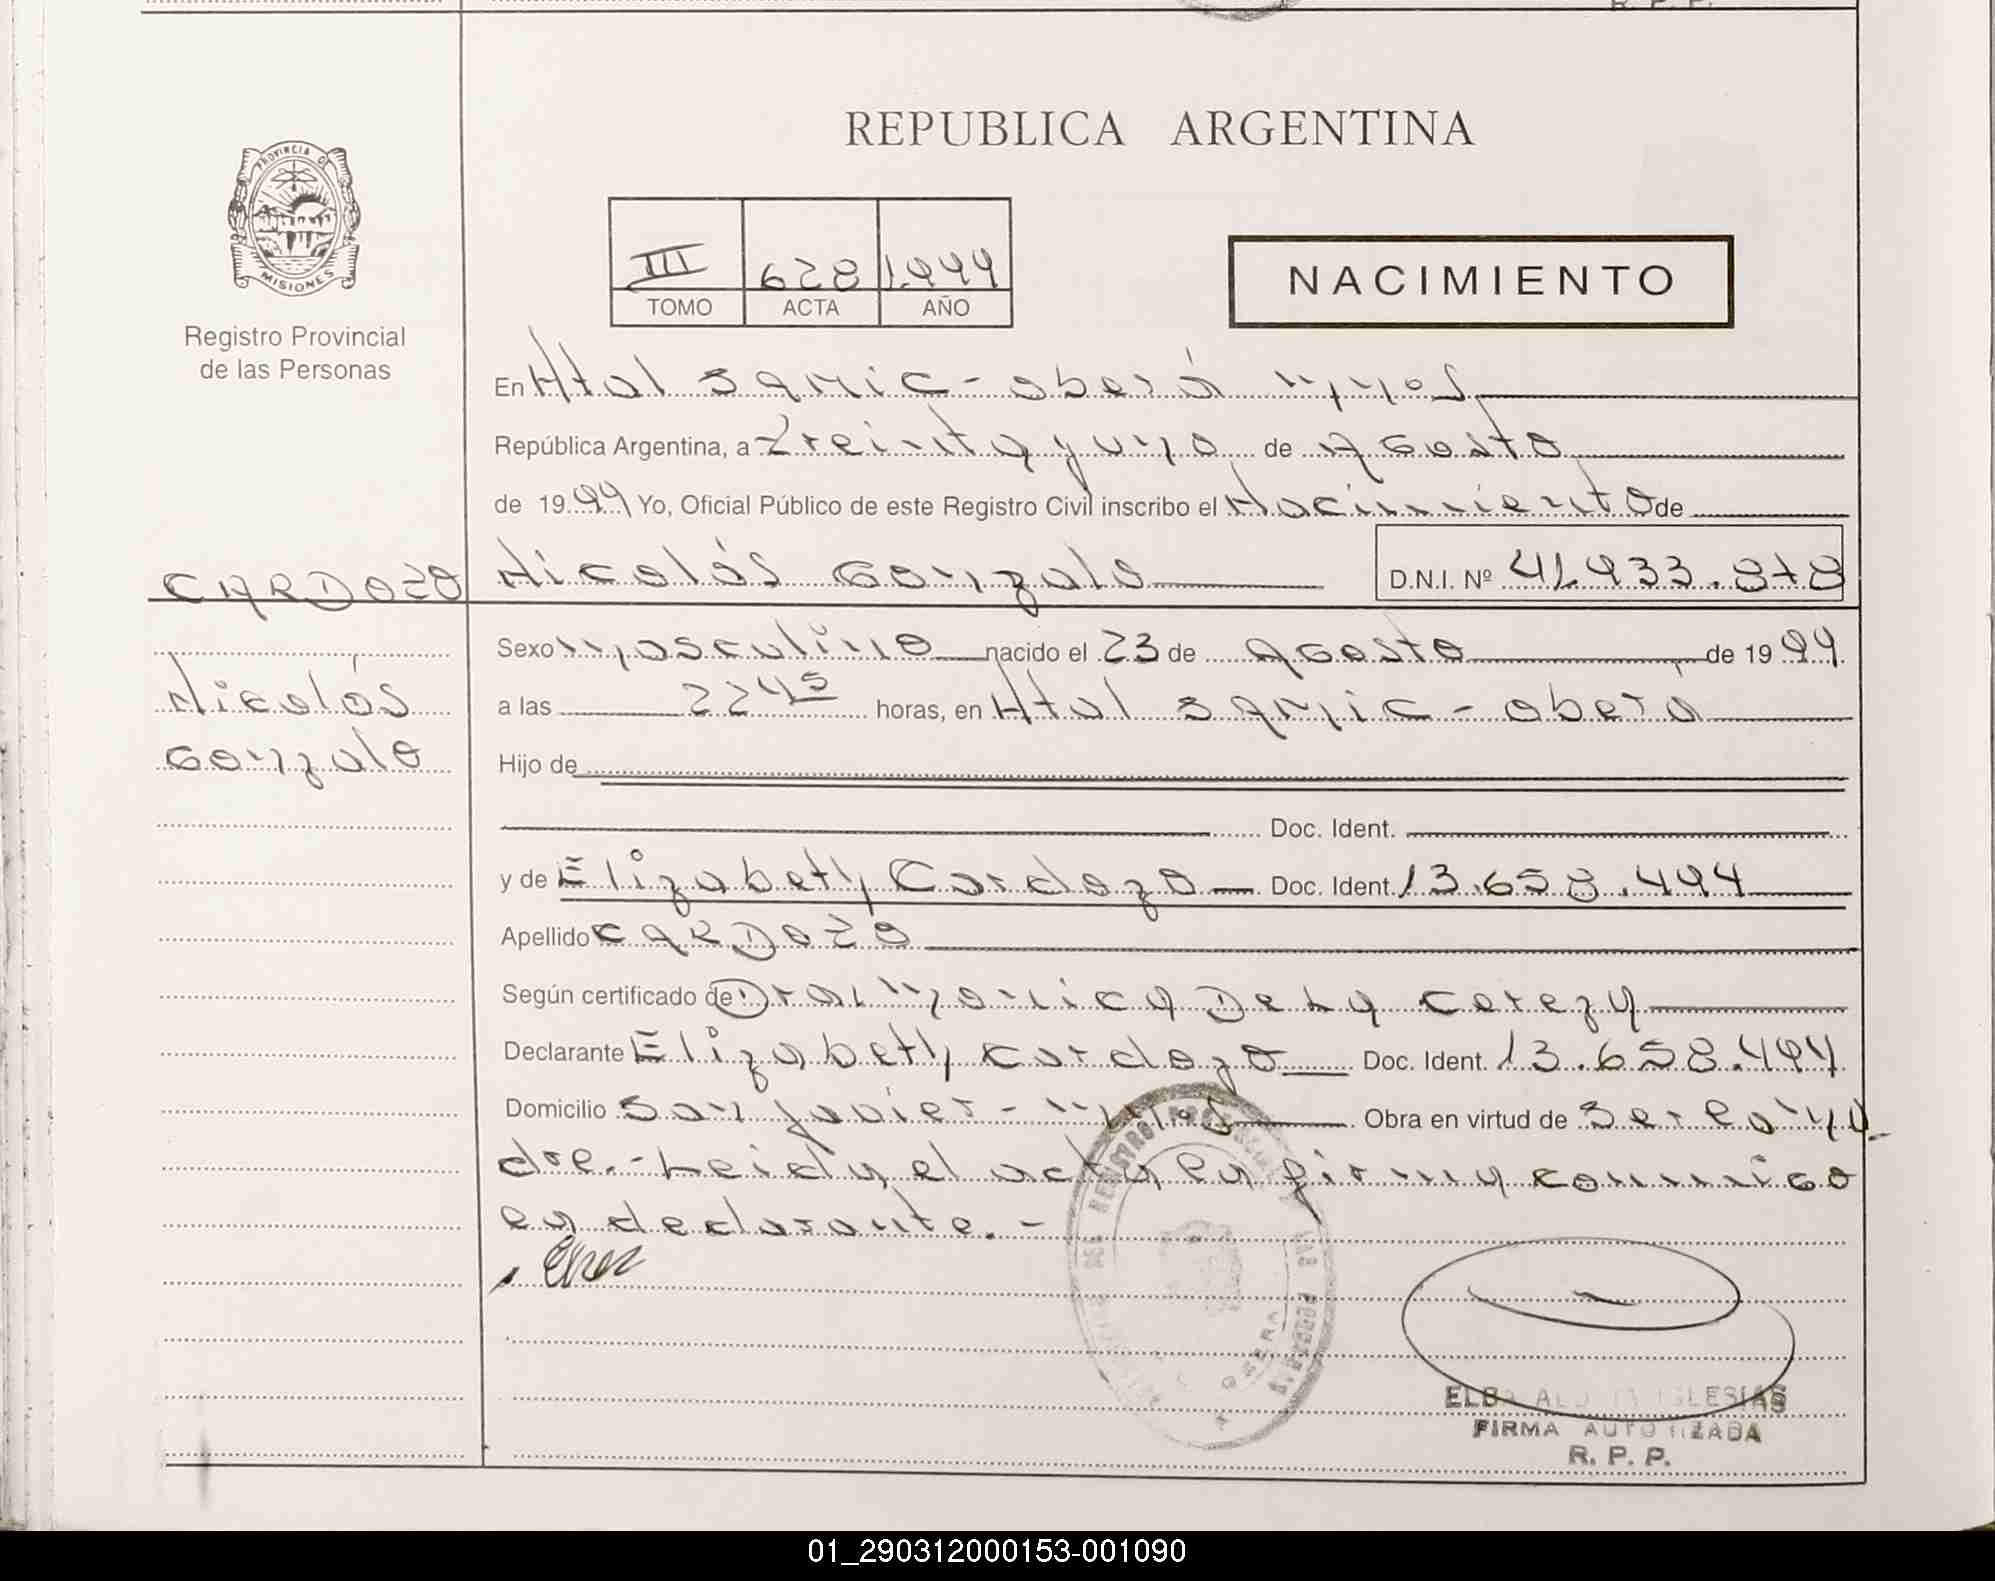 R. P. P.
REPUBLICA ARGENTINA
PROVINCIA DE
MISIONES
Registro Provincial
de las Personas
III 628 1.999
TOMO ACTA AÑO
NACIMIENTO
En Htal Samic - oberá Mnes
República Argentina, a treinta y uno de Agosto
de 1999 Yo, Oficial Público de este Registro Civil inscribo el Nacimiento de
CARDOZO Nicolás Gonzalo D.N.I. Nº 41.933.878
Sexo Masculino nacido el 23 de Agosto de 1999
Nicolás
a las 22 45 horas, en Htal Samic - oberá
Gonzalo
Hijo de
Doc. Ident.
y de Elizabeth Cardozo Doc. Ident. 13.658.494
Apellido CARDOZO
Según certificado de Dra. Monica De La
Declarante Elizabeth Cardozo Doc. Ident. 13.658.494
Domicilio San Javier - Mnes Obra en virtud de Ser la Ma-
dre.- Leida el acta la firma conmigo
la declarante.-
FIRMA AUTORIZADA
R. P. P.
01_290312000153-001090